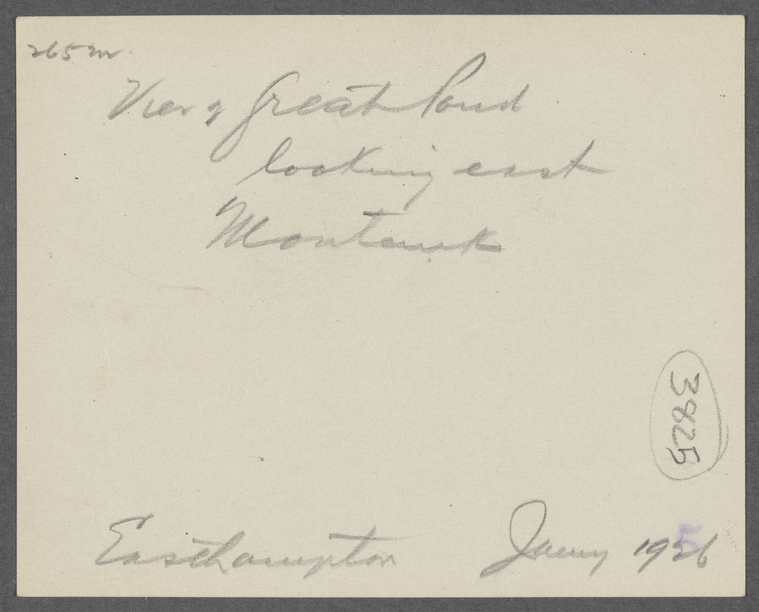 265 m.
View of Great Pond
looking east
Montauk
3825
Easthampton Jany 1926